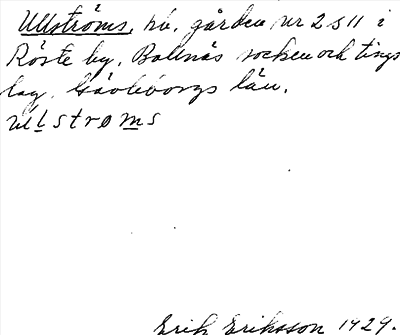 Ullströms, hv. gården nr 2 o 11 i
Röste by, Bollnäs socken och tings
lag. Gävleborgs län.
ullstroms
Erik Eriksson 1929.